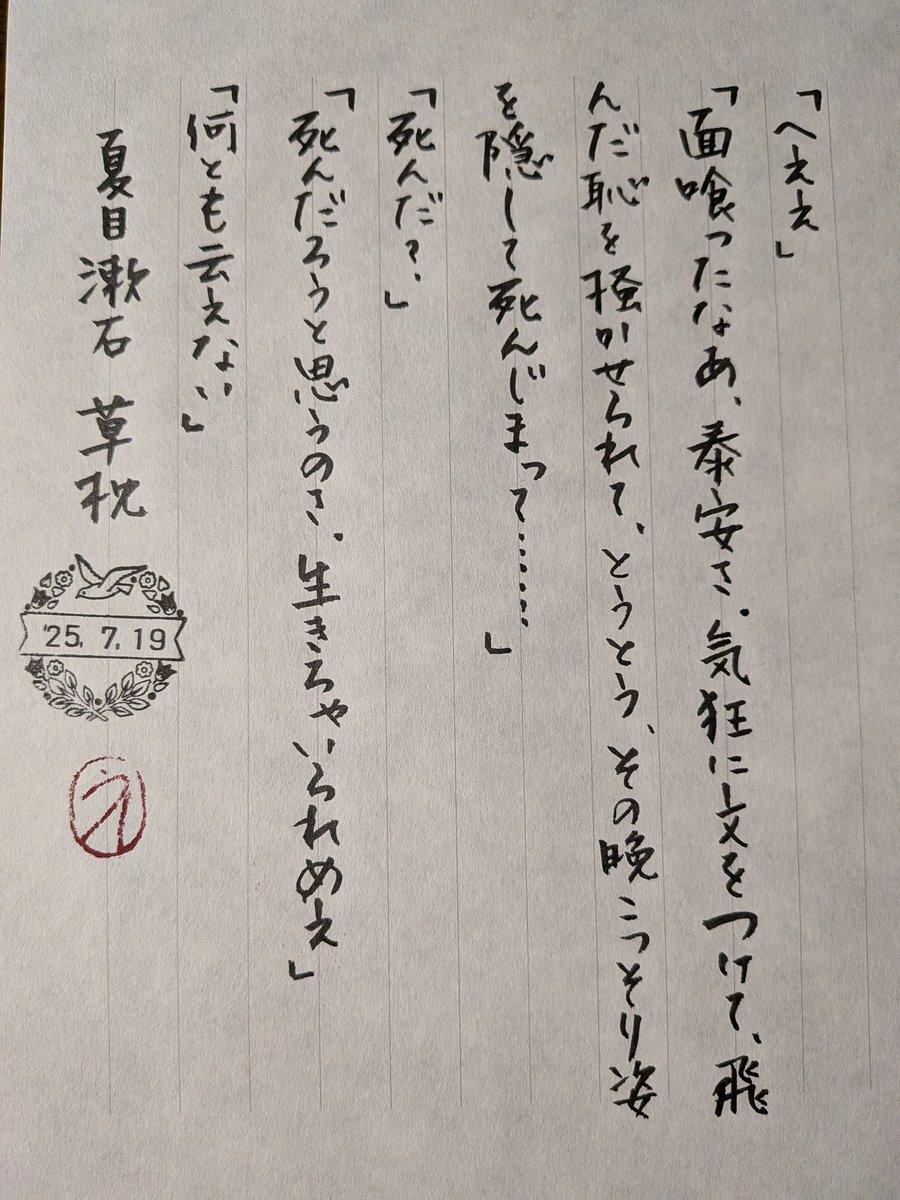 「へええ」
「面喰ったなあ、泰安さ。気狂に文をつけて、飛
んだ恥を掻かせられて、とうとう、その晩こっそり姿
を隠して死んじまって……」
「死んだ?」
「死んだろうと思うのさ、生きちゃいられめえ」
「何とも云えない」
夏目漱石 草枕
'25. 7. 19